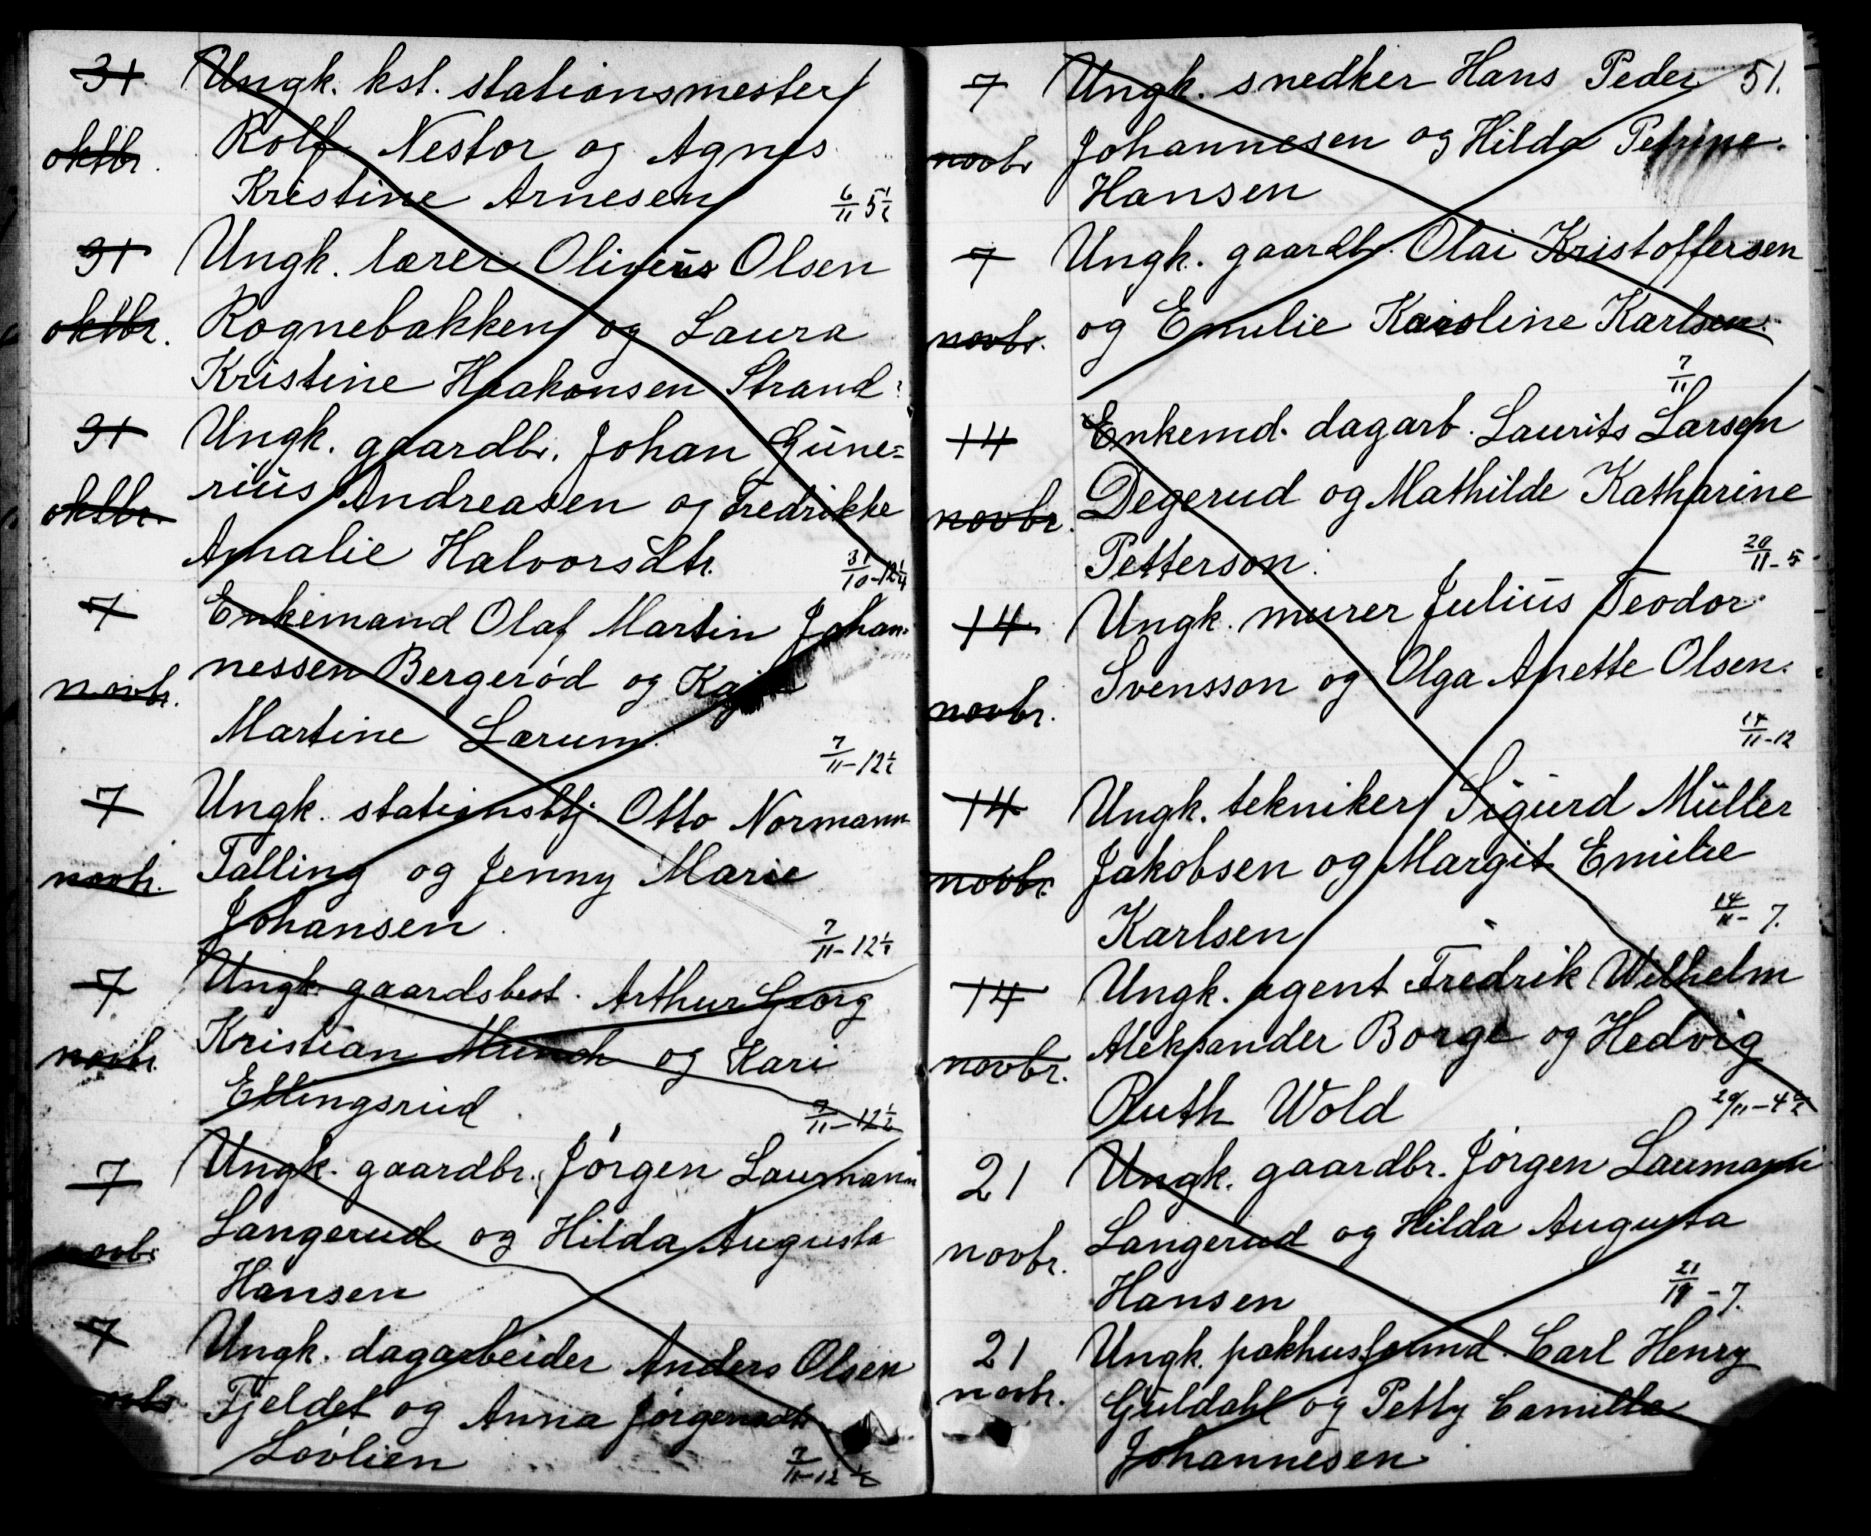 31 Ungk. kst. stationsmester
oktbr. Rolf Nestor og Agnes
Kristine Arnesen 6/11 5½
31 Ungk. lærer Olivius Olsen
oktbr. Rognebakken og Laura
Kristine Haakonsen Strand
31 Ungk. gaardbr. Johan Gune=
oktbr. rius Andreasen og Fredrikke
Amalie Halvorsdtr. 31/10-12¼
7 Enkemand Olaf Martin Johan-
novbr. nessen Bergerød og
Martine Lærum 7/11-12½
7 Ungk. stationsbtj. Otto Normann
novbr. Talling og Jenny Marie
Johansen. 7/11-12½
7 Ungk. gaardsbest. Arthur Georg
novbr. Kristian Munch og Kari
Ellingsrud. 7/11-12½
7 Ungk. gaardbr. Jörgen Laumann
novbr. Langerud og Hilda Augusta
Hansen
7 Ungk. dagarbeider Anders Olsen
Fjeldet og Anna Jørgensdtr
Lövlien 7/11-12½
51.
7 Ungk. snedker Hans Peder
novbr Johannesen og Hilda Petrine
Hansen
7 Ungk. gaardbr. Olai Kristoffersen
novbr. og Emilie Karoline Karlsen.
7/11
14 Enkemd. dagarb. Laurits Larsen
novbr. Degerud og Mathilde Katharine
Petterson. 20/11-5
14 Ungk. murer Julius Teodor
novbr. Svensson og Olga Anette Olsen.
14/11-12
14 Ungk. tekniker Sigurd Müller
novbr. Jakobsen og Margit Emilie
Karlsen 14/11-7.
14 Ungk. agent Fredrik Wilhelm
novbr. Aleksander Borge og Hedvig
Ruth Wold 20/11-4½
21 Ungk. gaardbr. Jörgen Laumann
novbr. Langerud og Hilda Augusta
Hansen 21/11-7.
21 Ungk. pakhusformd. Carl Henry
novbr. Guldahl og Petty Camilla
Johannesen.